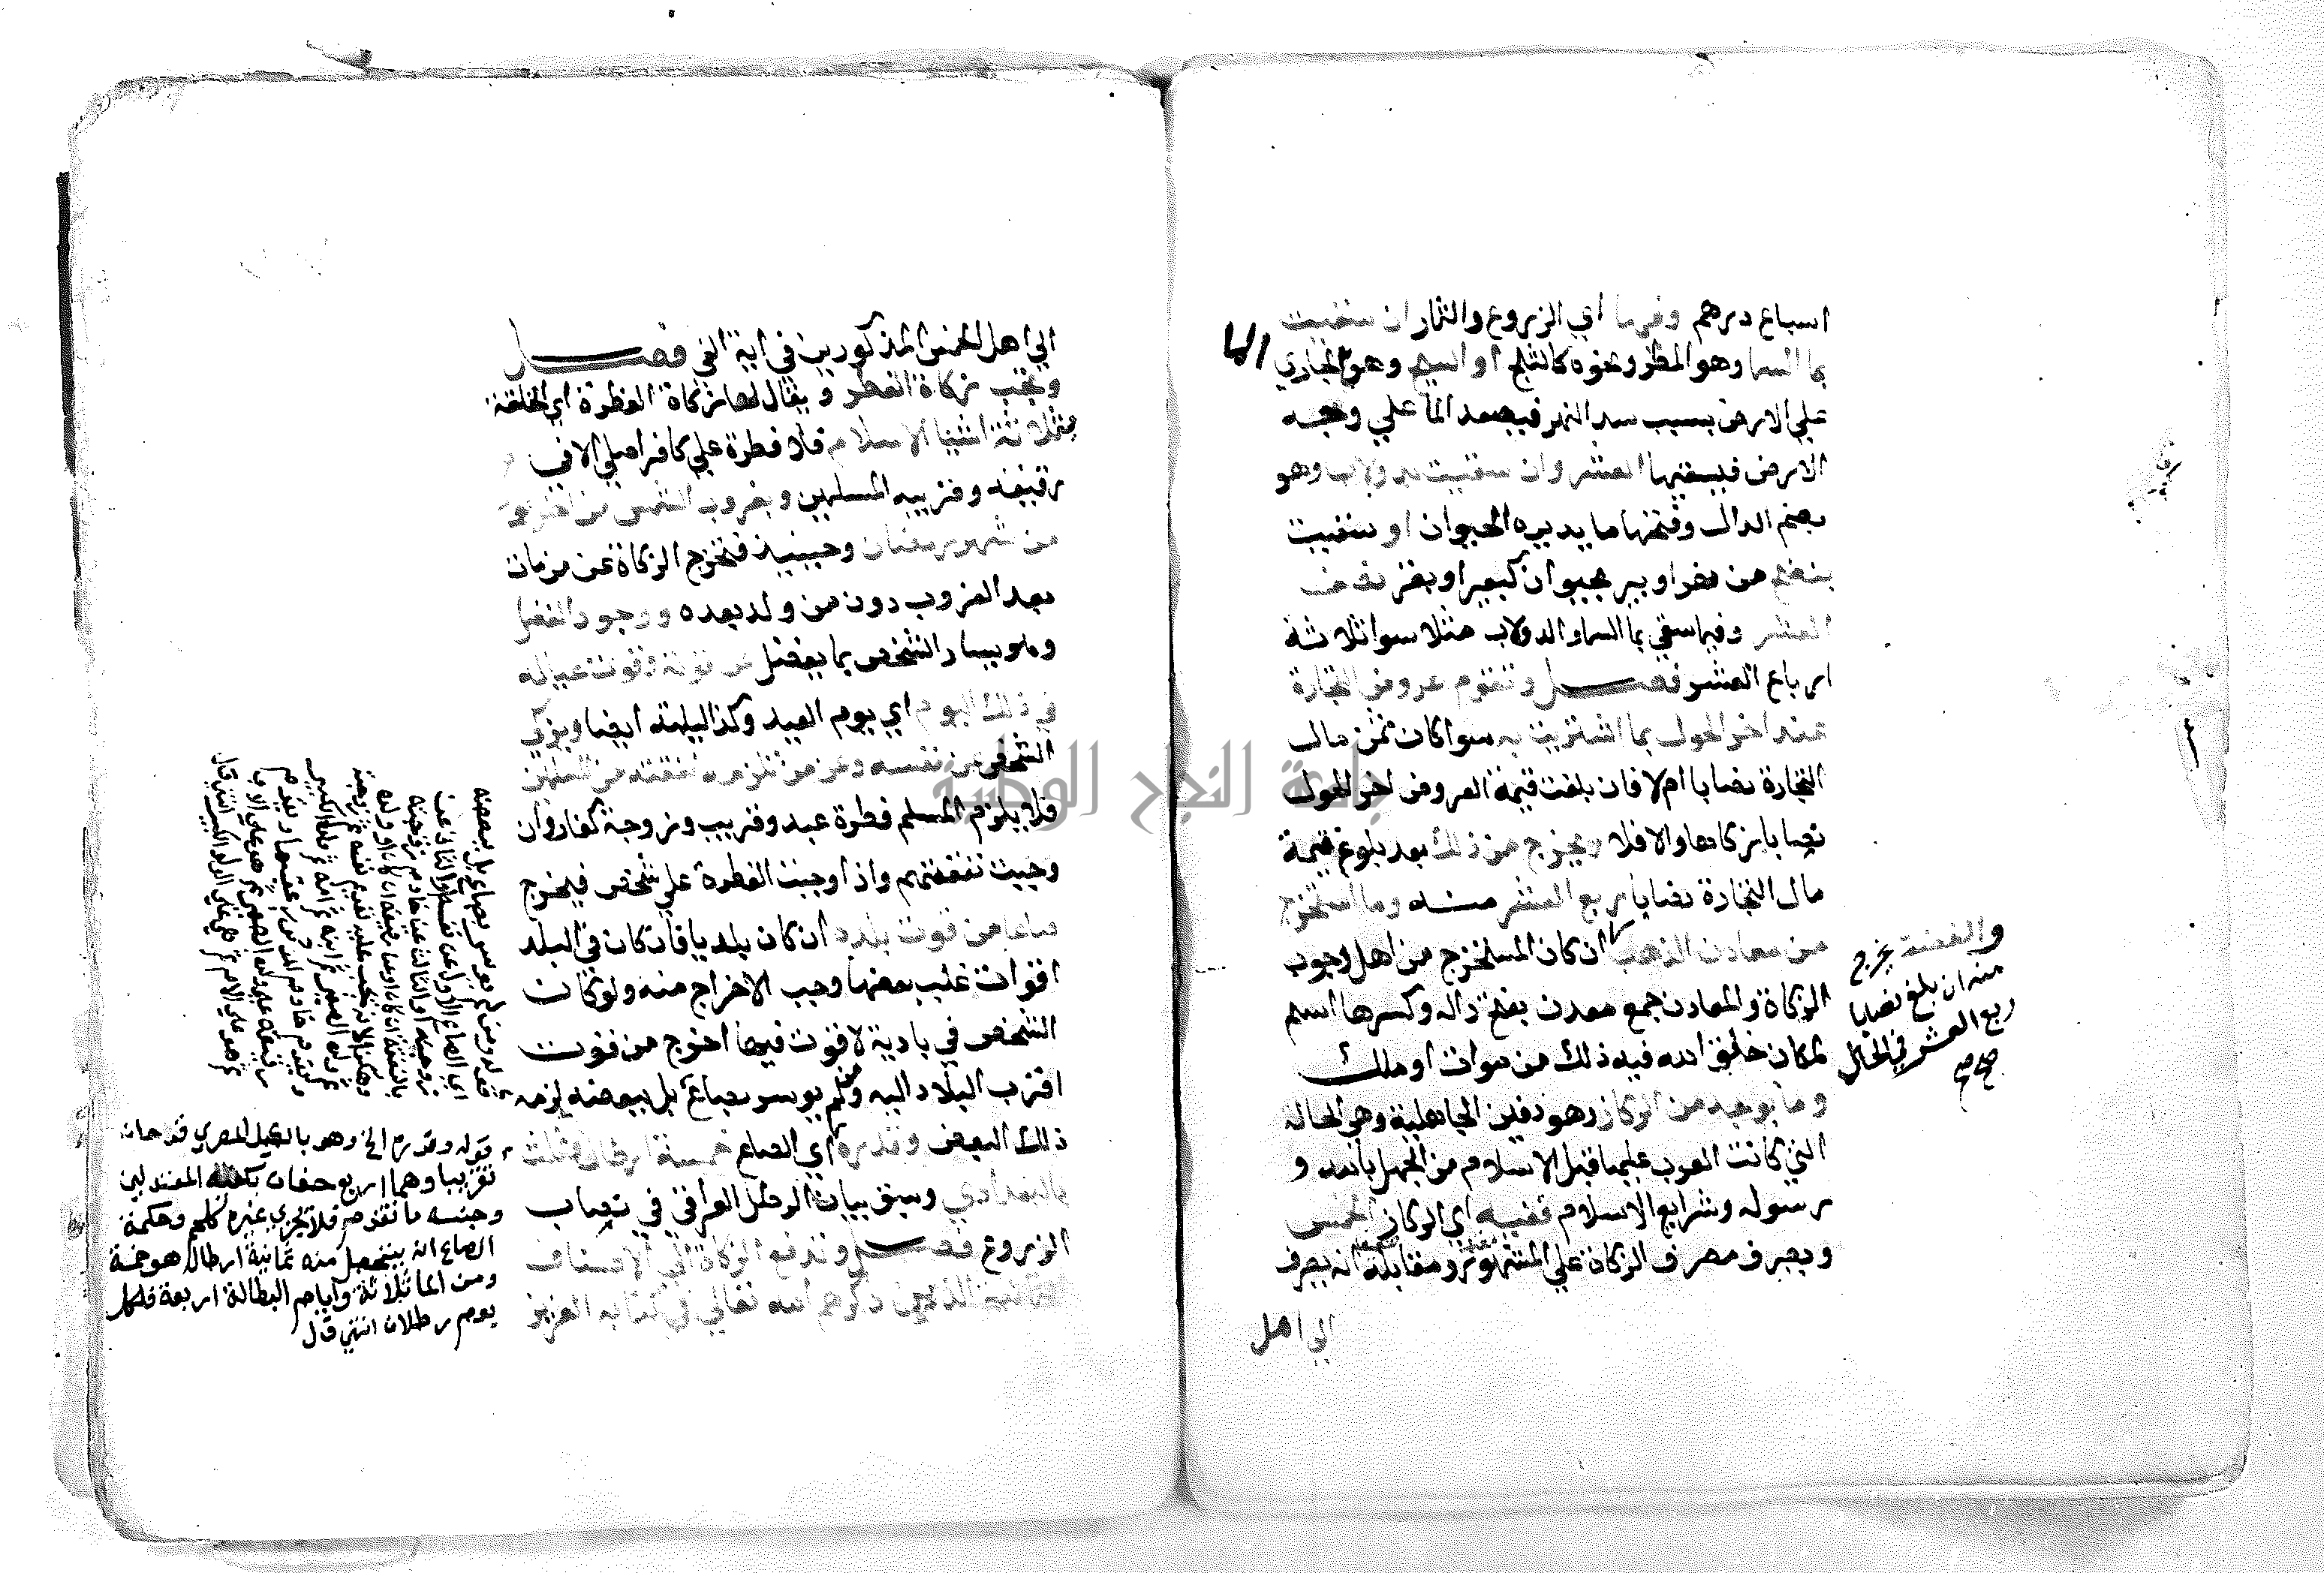 اسباع درهم وفيها اي الزروع والثمار ان سقيت
بما السما وهو المطر ونحوه كالثلج او السيح وهو الجاري
الما
علي الارض بسبب سد النهر فيصعد الما علي وجه
الارض فيسقيها العشر وان سقيت بدولاب وهو
بضم الدال وفتحها ما يديره الحيوان او سقيت
بنضح من نهر او بير بحيوان كبعير او بقر نصف
العشر وفيما سقي بما السما والدولاب مثلا سوا ثلاثة
ارباع العشر فصل وتقوم عروض التجارة
عند اخر الحول بما اشتريت به سوا كان ثمن مال
التجارة نصابا ام لا فان بلغت قيمة العروض اخر الحول
نصابا زكاها والا فلا ويخرج من ذلك بعد بلوغ قيمة
مال التجارة نصابا ربع العشر منه وما استخرج
من معادن الذهب ان كان المستخرج من اهل وجوب
الزكاة والمعادن جمع معدن بفتح داله وكسرها اسم
لمكان خلق الله فيه ذلك من موات او ملك
وما يوجد من الركاز وهو دفين الجاهلية وهي الحالة
التي كانت العرب عليها قبل الاسلام من الجهل بالله و
رسوله وشرايع الاسلام ففيه اي الركاز الخمس
ويصرف مصرف الزكاة علي المشهور ومقابله انه يصرف
الي اهل
والفضة يخرج
منه ان بلغ نصابا
ربع العشر في الحال
صح صح
الي اهل الخمس المذكورين في اية الفي فصل
وتجب زكاة الفطر ويقال لها زكاة الفطرة اي الخلقة
بثلاثة اشيا الاسلام فلا فطرة علي كافر اصلي الا في
رقيقه وقريبه المسلمين وبغروب الشمس من اخر يوم
من شهر رمضان وحينيذ فتخرج الزكاة عن من مات
بعد الغروب دون من ولد بعده ووجود الفضل
وهو يسار الشخص بما يفضل عن قوته وقوت عياله
في ذلك اليوم اي يوم العيد وكذا ليلته ايضا ويزكي
الشخص عن نفسه وعن من تلزمه نفقته من المسلمين
فلا يلزم المسلم فطرة عبد وقريب وزوجة كفار وان
وجبت نفقتهم واذا وجبت الفطرة علي شخص فيخرج
صاعا من قوت بلده ان كان بلديا فان كان في البلد
اقوات غلب بعضها وجب الاخراج منه ولو كان
الشخص في بادية لا قوت فيها اخرج من قوت
اقرب البلاد اليه ومن لم يوسر بصاع بل ببعضه لزمه
ذلك البعض وقدره اي الصاع خمسة ارطال وثلث
بالبغدادي وسبق بيان الرطل العراقي في نصاب
الزروع فصل وتدفع الزكاة الي الاصناف
الثمانية الذين ذكرهم الله تعالي في كتابه العزيز
قوله ومن لم يوسر بصاع بل ببعضه
قوله وقدره الخ وهو بالكيل المصري قدحان
تقريبا وهما اربع حفنات بكف المعتدلين
وجنسه ما تقدم فلا يجزي غيره كلحم وحكمة
الصاع انه يتحصل منه ثمانية ارطال هو خمسة
ومن الما ثلاثة وايام البطالة اربعة فلكل
يوم رطلان انتهي ق ل
جامعة النجاح الوطنية